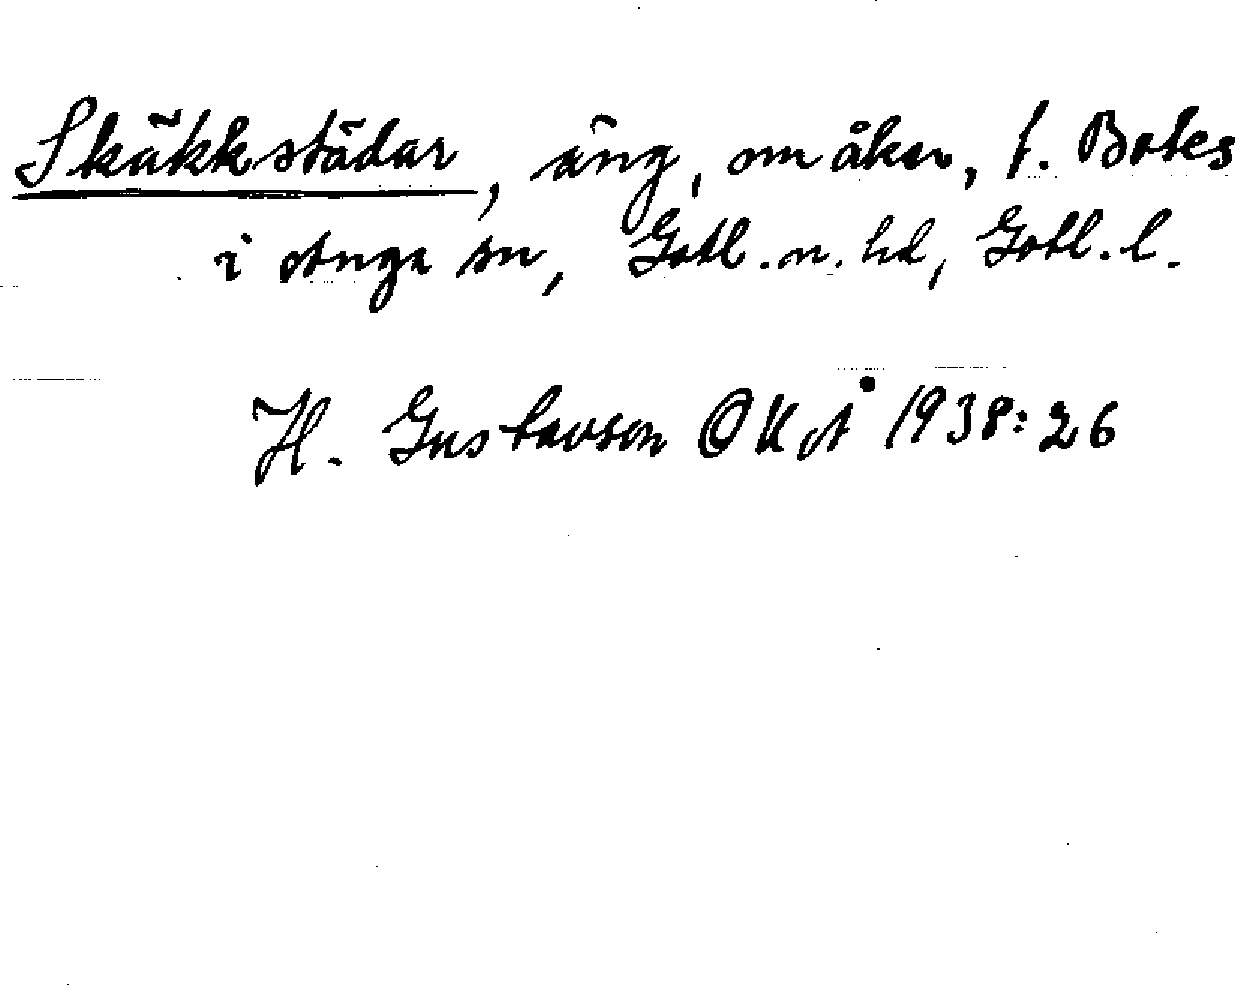 Skäkkstädar, äng, nu åker, f. Botes
i Anga sn, Gotl. n. hd, Gotl. l.
H. Gustavson OKÅ 1938:26